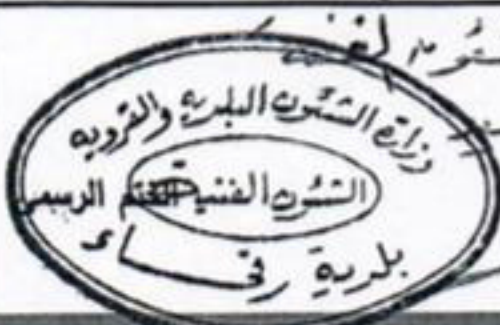 وزارة الشئون البلدية والقروية
الشئون الفنية
الختم الرسمي
بلدية رفحاء